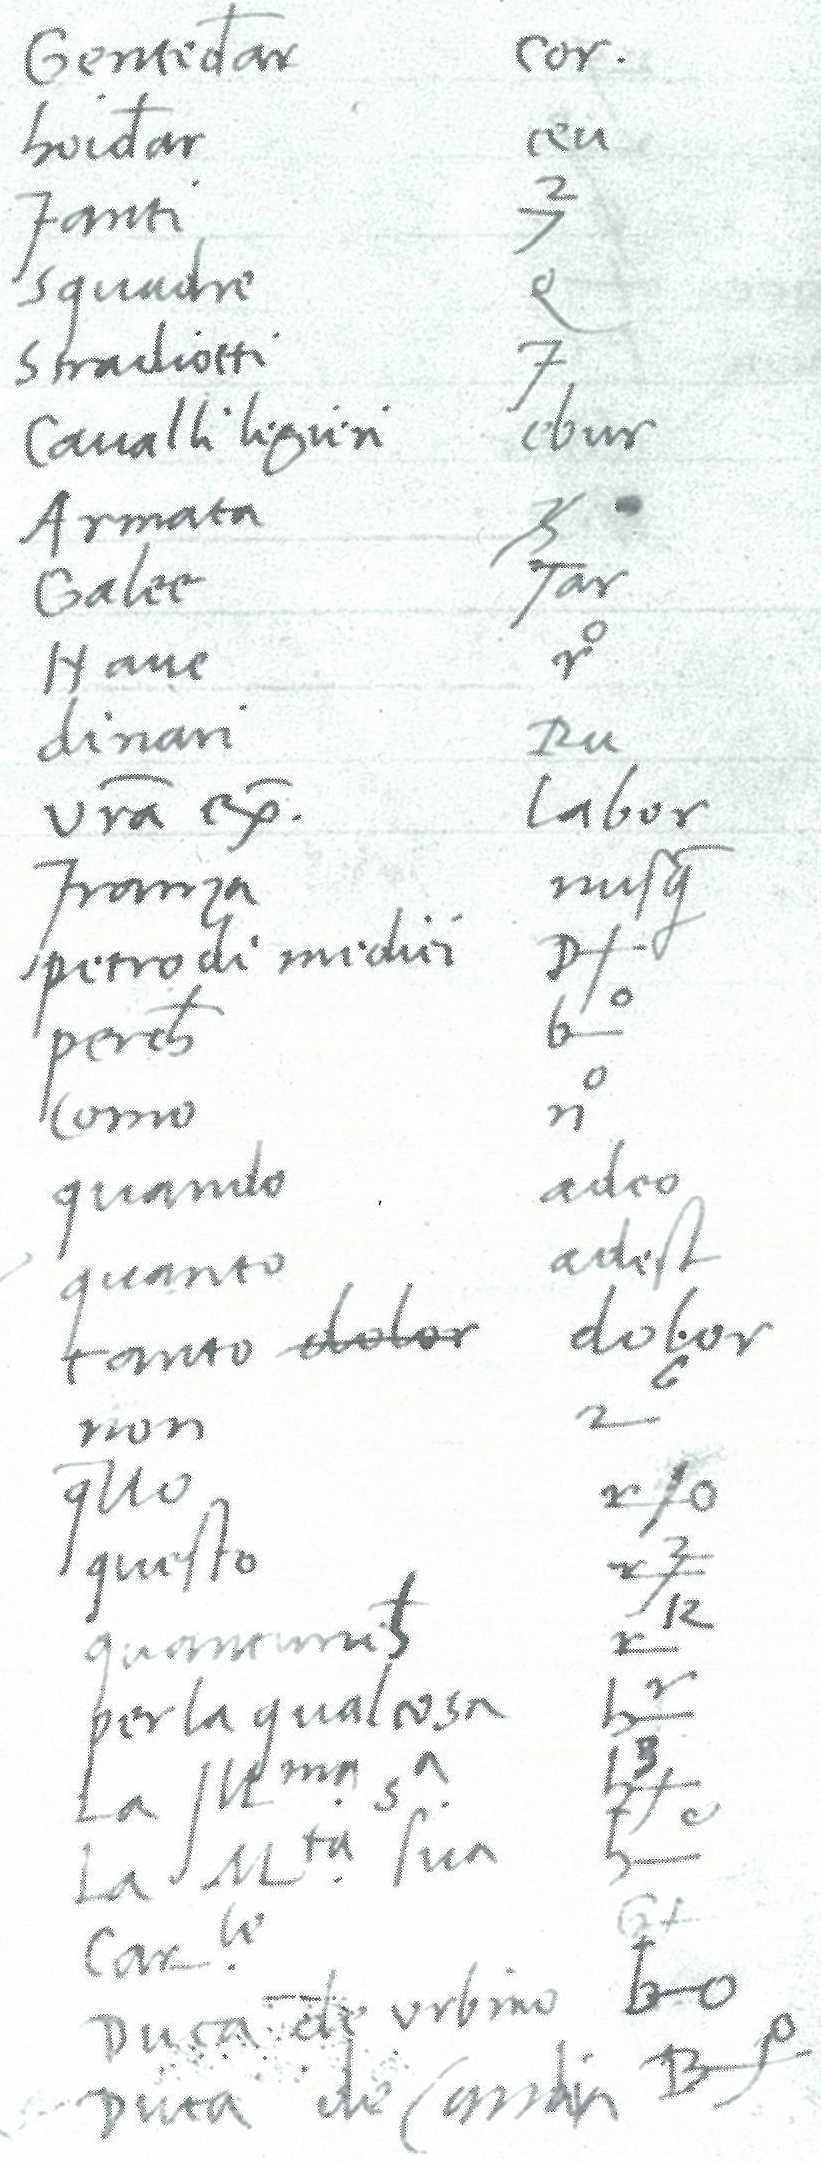 Gentedar cor.
hoidar ceu
fanti 7 2
squadre
stradiotti 7
Caualli ligieri ebur
Armata
Galee Tar
Naue r o
dinari Ru
vra exp. labor
franza nusq
petro di medici
perch b o
como n o
quando adeo
quanto adest
tanto dolor dolor
non 2 6
qllo r/o
questo
r 12
per la qual cosa h r
La Ill ma. s a.
La M ta. sua h
Car le. G+
Duca de vrbino b-o
Duca de Candia B